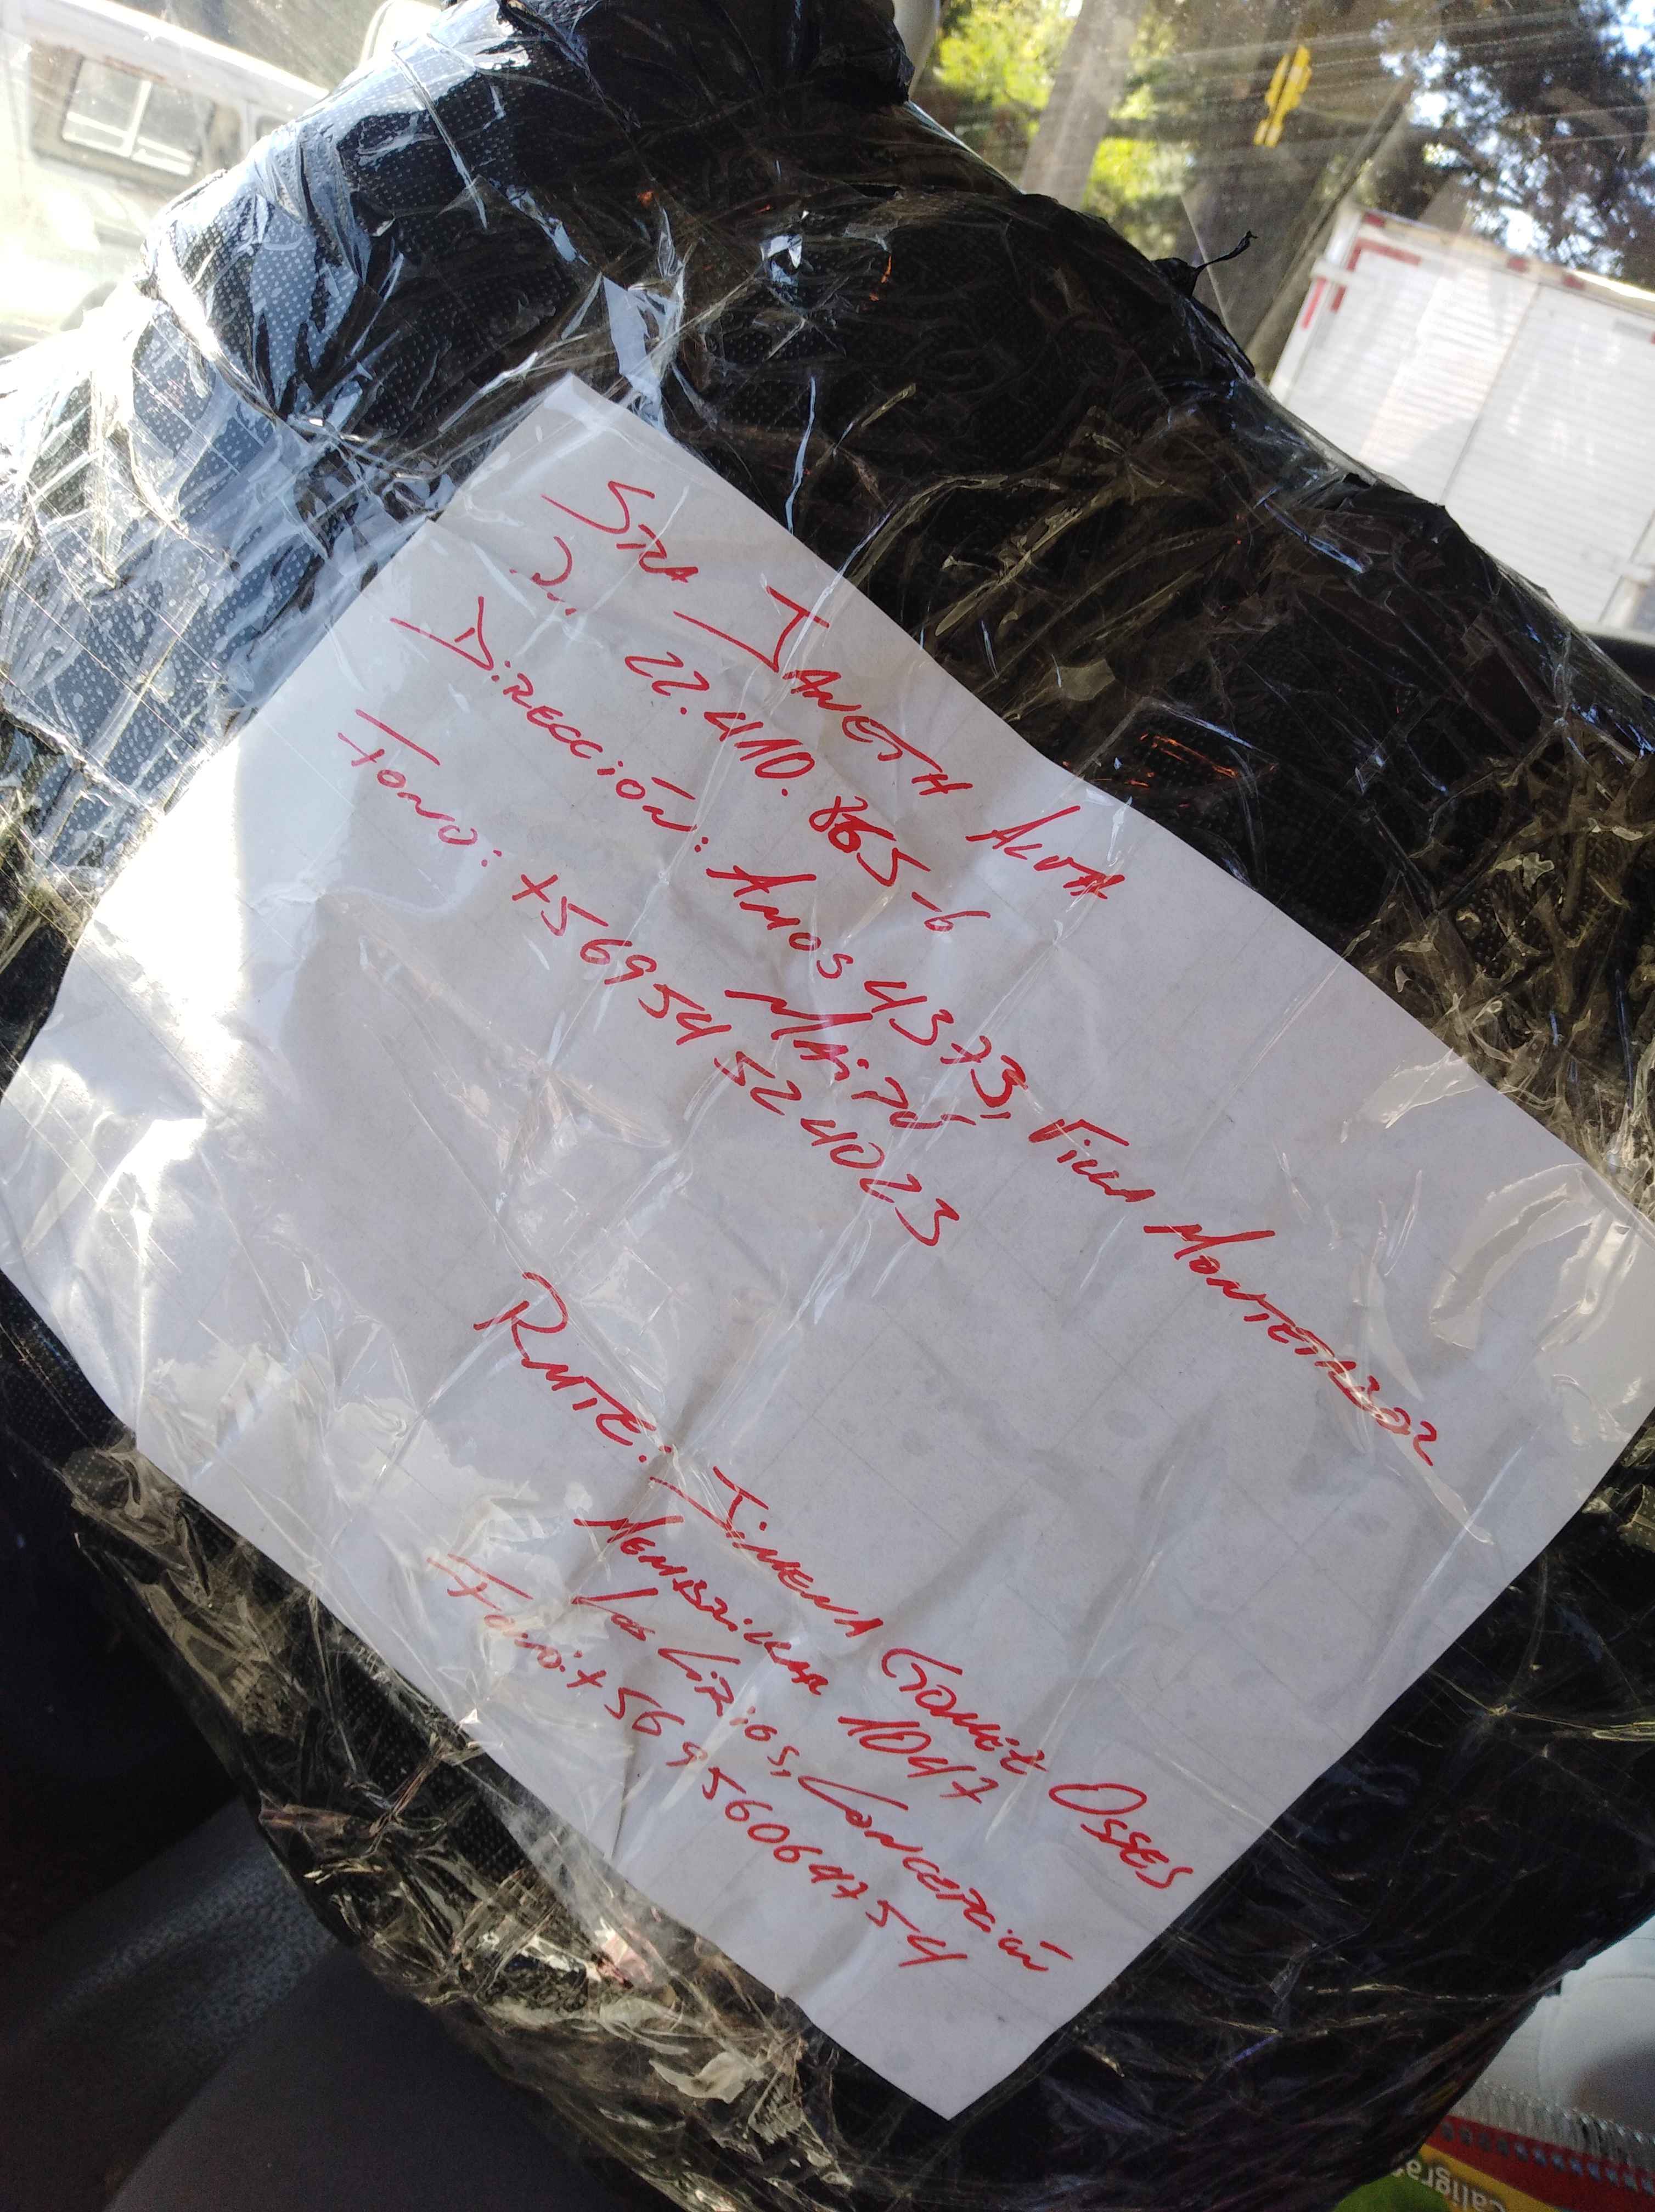 Sra Janeth Alva
22.410.865-6
Dirección: Amos 4373, Villa Montetabor
Maipú
Fono: +569 54 52 4023
Rmte: Jimena Gomez Osses
Membrillar 1047
Los Lirios, Concepción
Fono: +56 9 56064754